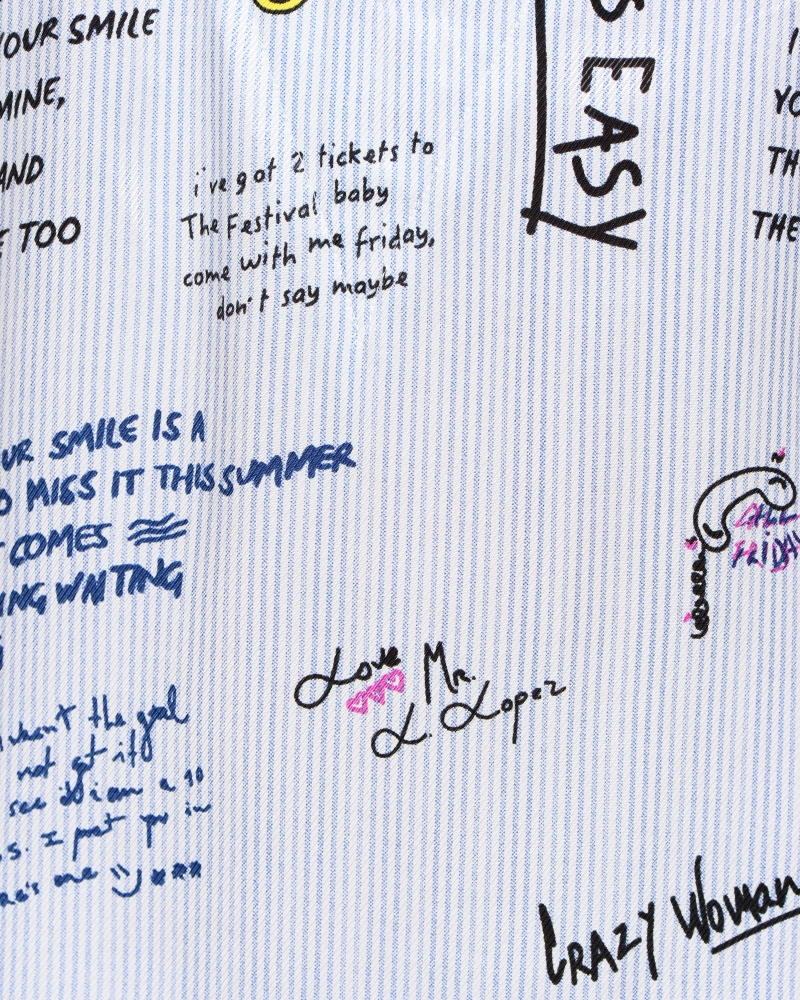 YOUR SMILE
MINE,
AND
TOO
i've got 2 tickets to
The Festival baby
come with me friday,
don't say maybe
EASY
YO
TH
THE
UR SMILE IS A
MISS IT THIS SUMMER
COMES
ING WAITING
the goal
not get it
see i am a 10
s. I put you in
me
CALL
FRIDAY
Love Mr.
L. Lopez
CRAZY Woman